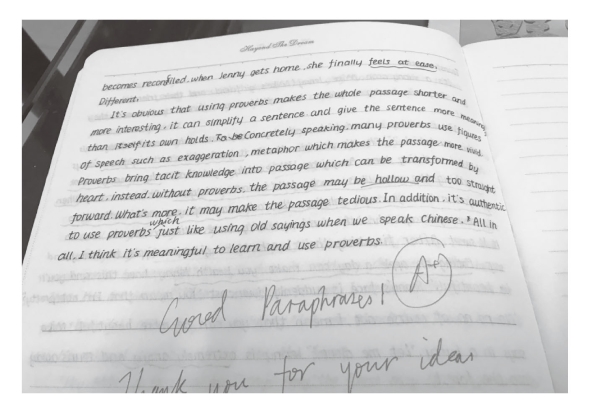 Beyond The Dream
becomes reconfiled. when Jenny gets home, she finally feels at ease.
Different.
It's obvious that using proverbs makes the whole passage shorter and
more interesting, it can simplify a sentence and give the sentence more meaning
than itself its own holds. To be Concretely speaking, many proverbs use figures
of speech such as exaggeration, metaphor which makes the passage more vivid
Proverbs bring tacit knowledge into passage which can be transformed by
heart, instead. without proverbs, the passage may be hollow and too straight
forward. What's more, it may make the passage tedious. In addition, it's authentic
to use proverbs which just like using old sayings when we speak Chinese. All in
all. I think it's meaningful to learn and use proverbs.
Good Paraphrases! A++
Thank you for your ideas